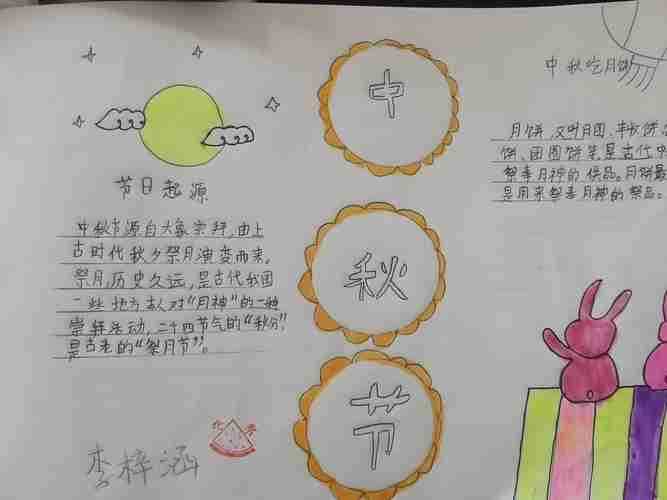 中
秋
节
节日起源
中秋节源自天象崇拜,由上
古时代秋夕祭月演变而来。
祭月,历史久远,是古代我国
一些地方古人对“月神”的一种
崇拜活动,二十四节气的“秋分”,
是古老的“祭月节”。
李梓涵
中秋吃月饼
月饼,又叫月团、丰收饼、
饼、团圆饼等,是古代中
祭奉月神的供品。月饼最
是用来祭奉月神的祭品。